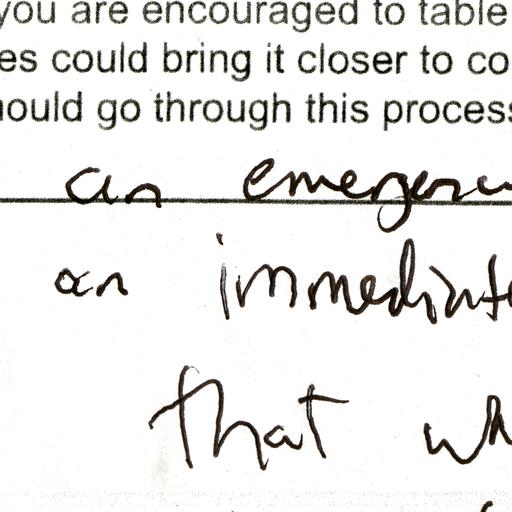 you are encouraged to table
es could bring it closer to co
hould go through this process
an emergenc
an immediate
that wh